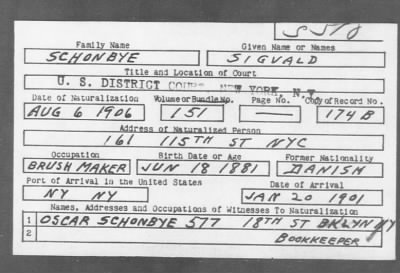 S510
Family Name Given Name or Names
SCHONBYE SIGVALD
Title and Location of Court
U. S. DISTRICT COURT, NEW YORK, N.Y.
Date of Naturalization Volume or Bundle No. Page No. Copy of Record No.
AUG 6 1906 151 — 174 B
Address of Naturalized Person
161 115TH ST NYC
Occupation Birth Date or Age Former Nationality
BRUSH MAKER JUN 18 1881 DANISH
Port of Arrival in the United States Date of Arrival
NY NY JAN 20 1901
Names, Addresses and Occupations of Witnesses To Naturalization
1 OSCAR SCHONBYE 577 18TH ST BKLYN NY
2 BOOKKEEPER